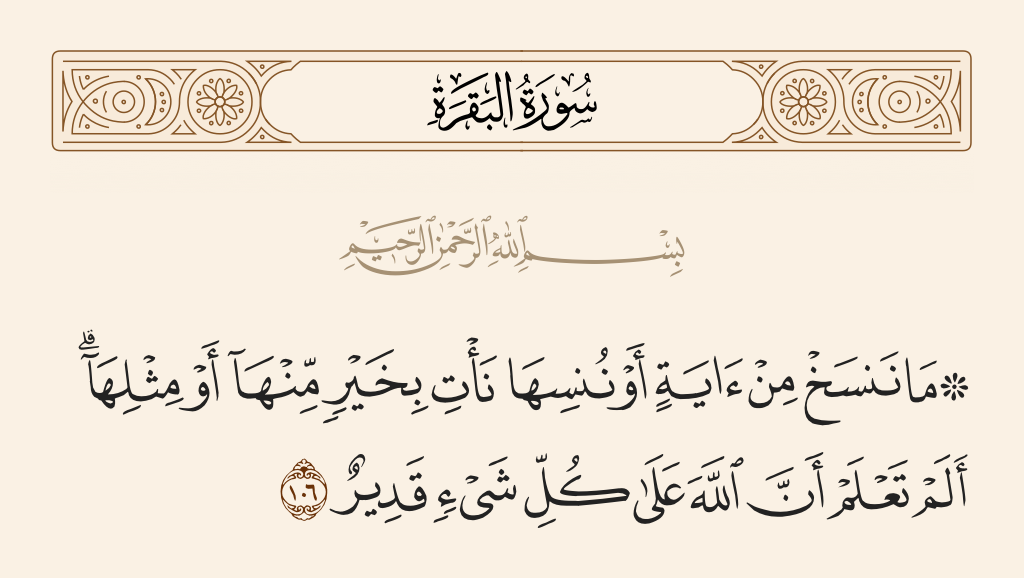 سُورَةُ البَقَرَةِ
بِسْمِ ٱللَّهِ ٱلرَّحْمَٰنِ ٱلرَّحِيمِ
۞ مَا نَنسَخْ مِنْ ءَايَةٍ أَوْ نُنسِهَا نَأْتِ بِخَيْرٍ مِّنْهَآ أَوْ مِثْلِهَآ ۗ
أَلَمْ تَعْلَمْ أَنَّ ٱللَّهَ عَلَىٰ كُلِّ شَىْءٍ قَدِيرٌ ١٠٦